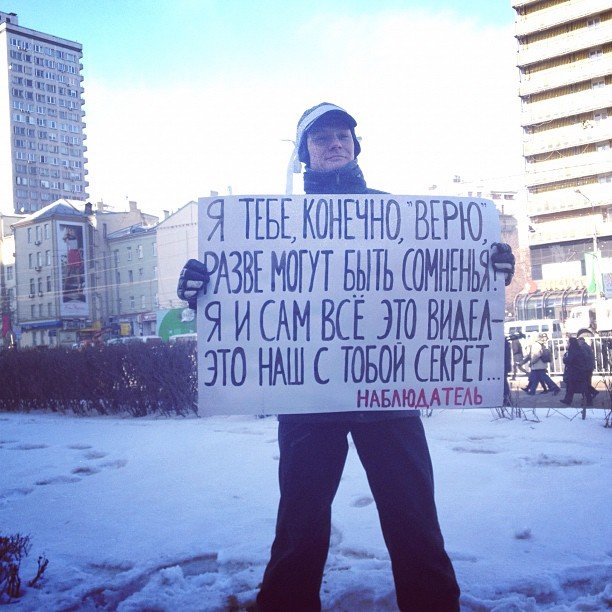 Я ТЕБЕ, КОНЕЧНО, "ВЕРЮ",
РАЗВЕ МОГУТ БЫТЬ СОМНЕНЬЯ?
Я И САМ ВСЁ ЭТО ВИДЕЛ–
ЭТО НАШ С ТОБОЙ СЕКРЕТ...
НАБЛЮДАТЕЛЬ